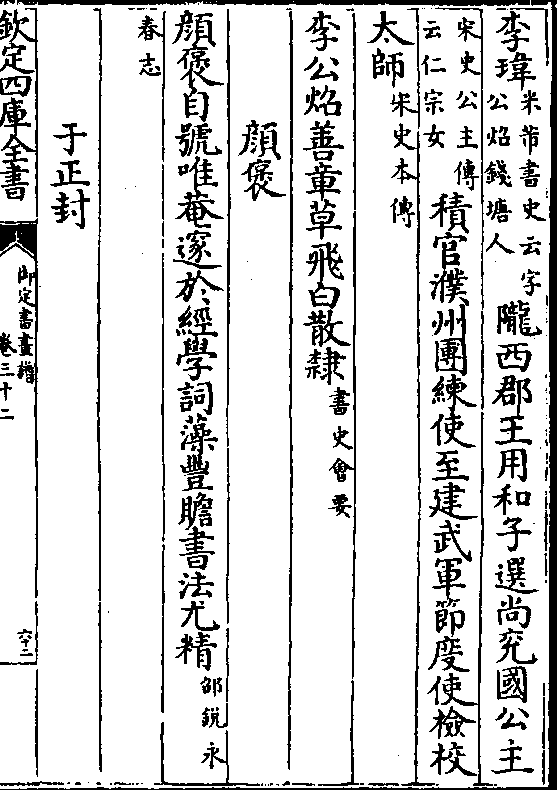 李瑋米芾書史云字公炤錢塘人隴西郡王用和子選尚兗國公主
宋史公主傳云仁宗女積官濮州團練使至建武軍節度使檢校
太師宋史本傳
李公炤善章草飛白散隸書史會要
顔褒
顔褒自號唯菴邃於經學詞藻豐贍書法尤精邹銳永
春志
于正封
欽定四庫全書
御定書畫譜
卷三十二
六十二